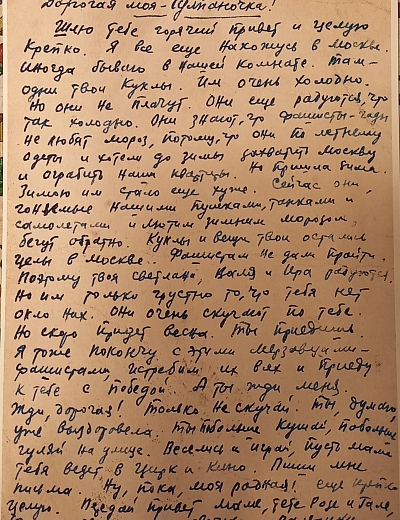 Дорогая моя
Шлю тебе горячий привет и целую
крепко. Я все еще нахожусь в Москве.
Иногда бываю в нашей комнате. Там-
одни твои куклы. Им очень холодно.
Но они не плачут. Они еще радуются, что
так холодно. Они знают, что фашисты-гады
не любят мороз, потому, что они по летнему
одеты и хотели до зимы захватить Москву
и ограбить наши квартиры. Но пришла зима.
Зимою им стало еще хуже. Сейчас они,
гонимые нашими пушками, танками и
самолетами и лютым зимним морозом,
бегут обратно. Куклы и вещи твои остались
целы в Москве. Фашистам не дали пройти.
Поэтому твоя Светлана, и Ира радуются.
Но им только грустно то, что тебя нет
около них. Они очень скучают по тебе.
Но скоро придет весна. Ты приедешь
Я тоже покончу с этими мерзавцами-
фашистами, истребим их всех и приеду
к тебе с победой. А ты жди меня.
Жди, дорогая! Только не скучай. Ты, думаю,
уже выздоровела. Ты побольше кушай, побольше
гуляй на улице. Веселись и играй, пусть мама
тебя ведет в цирк и кино. Пиши мне
письма. Ну, пока, моя родная! Еще крепко
целую. Передай привет маме, тете Розе и Гале,